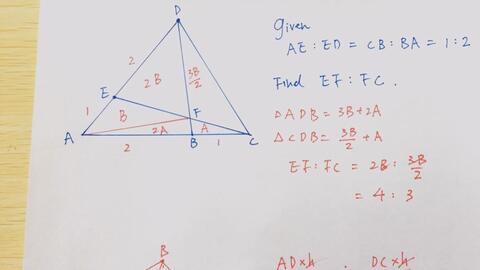 D
Given
AE : ED = CB : BA = 1 : 2
2
2B
3B/2
Find EF : FC .
E
1
B
F
△ADB = 3B + 2A
A
2A
A
B
C
2
1
△CDB = 3B/2 + A
EF : FC = 2B : 3B/2
= 4 : 3
B
AD×h . DC×h